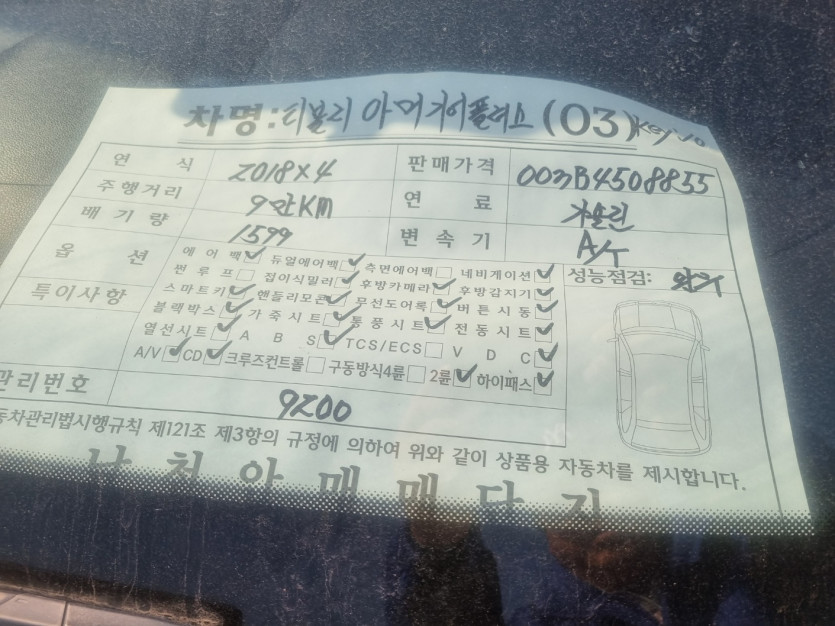 차명: 티볼리 아머기어플러스 (03) Key No
연 식 2018X4 판매가격 003B4508855
주행거리 9만KM 연 료 가솔린
배기량 1599 변속기 A/T
옵 션 에어백✓ 듀얼에어백✓ 측면에어백□ 네비게이션✓ 성능점검:
썬루프□ 접이식밀러✓ 후방카메라✓ 후방감지기✓
특이사항 스마트키✓ 핸들리모콘✓ 무선도어록✓ 버튼시동✓
블랙박스✓ 가죽시트✓ 통풍시트✓ 전동시트✓
열선시트✓ A B S✓ TCS/ECS□ V D C✓
A/V✓ CD✓ 크루즈컨트롤□ 구동방식4륜□ 2륜✓ 하이패스✓
관리번호 9200
동차관리법시행규칙 제121조 제3항의 규정에 의하여 위와 같이 상품용 자동차를 제시합니다.
매매단지